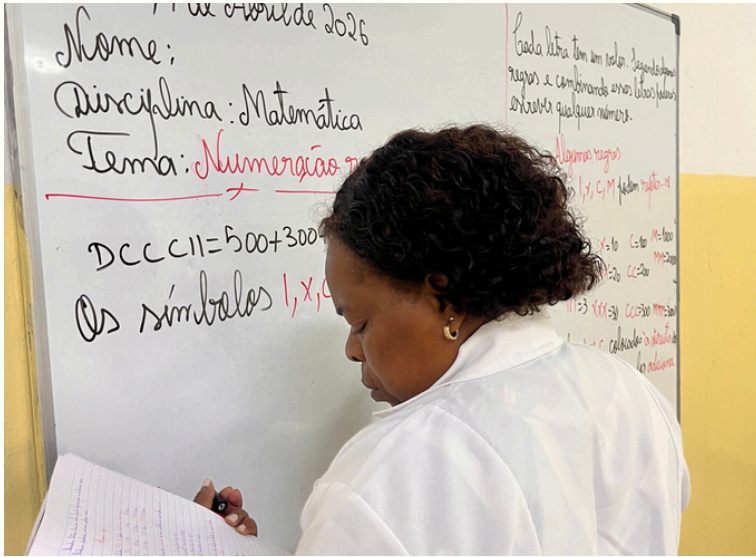 de Abril de 2026
Nome:
Disciplina: Matemática
Tema: Numeração
DCCCII=500+300
Os símbolos I, X, C
Cada letra tem um valor. Segundo algumas
regras e combinando essas letras podemos
escrever qualquer número.
Algumas regras
I, X, C, M podem repetir-se
X=10 C=100 M=1000
=20 CC=200
=3 XXX=30 CCC=300
colocados à direita
adiciona